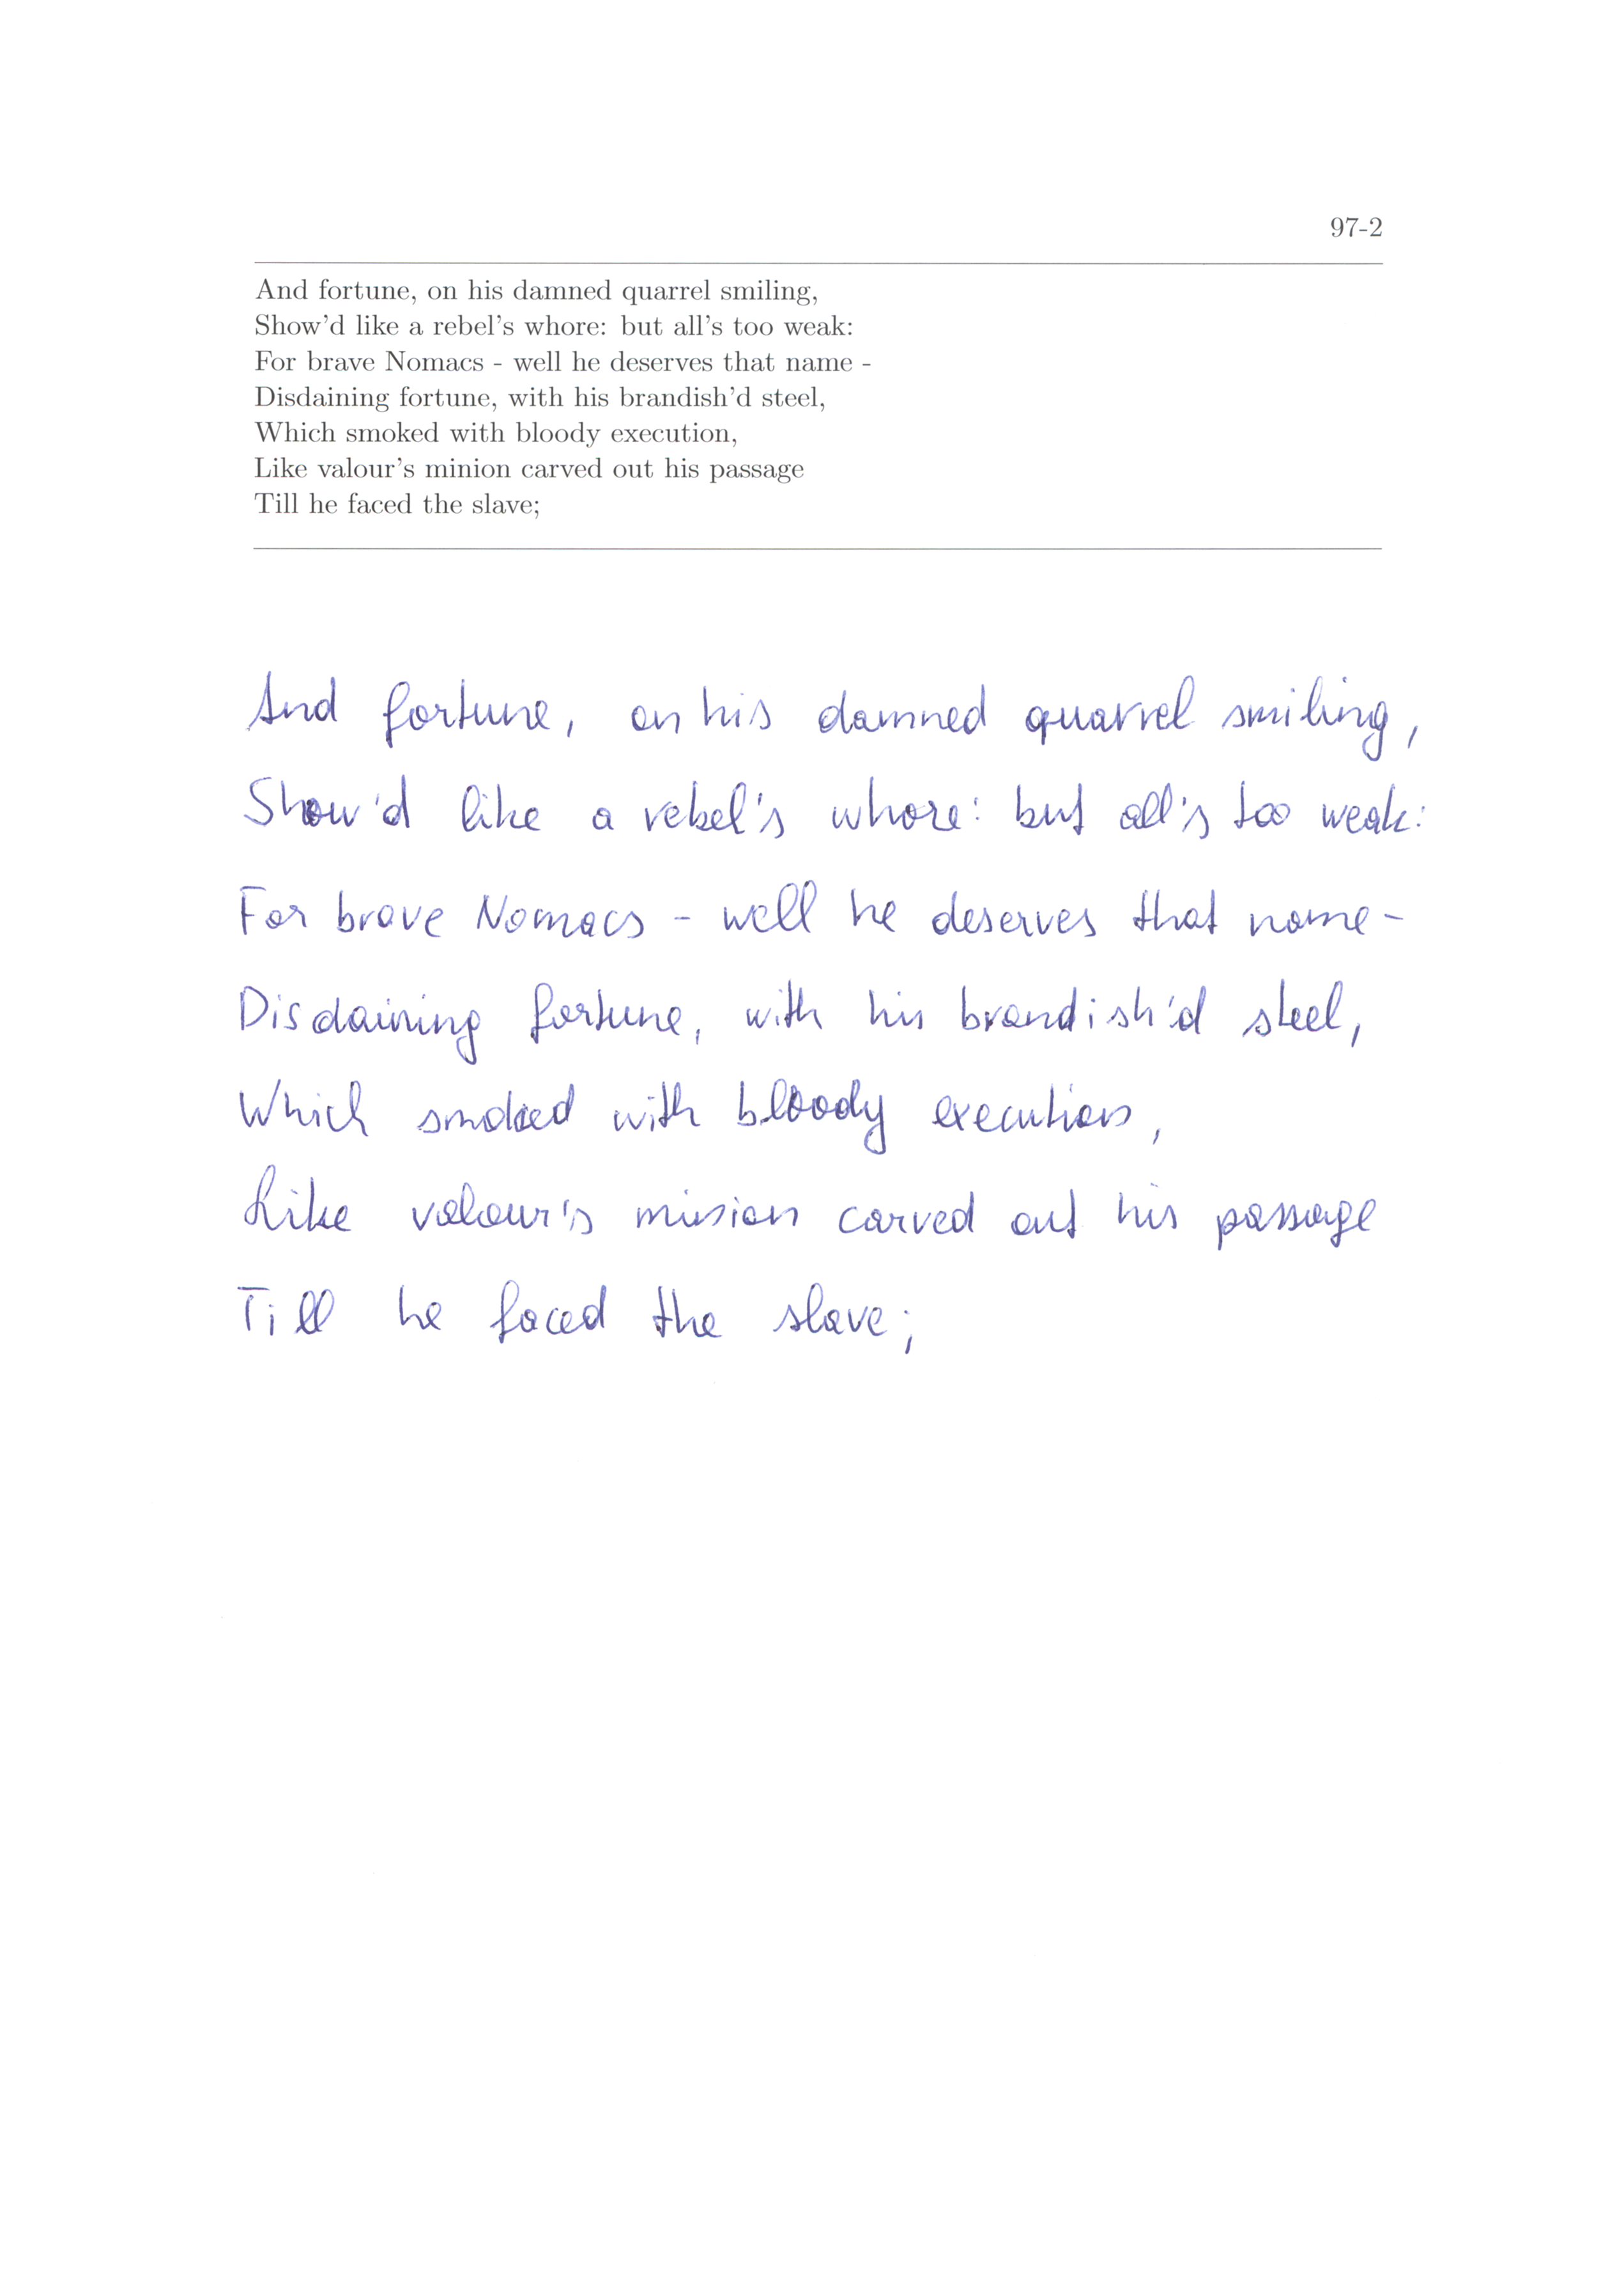 97-2
And fortune, on his damned quarrel smiling,
Show'd like a rebel's whore: but all's too weak:
For brave Nomacs - well he deserves that name -
Disdaining fortune, with his brandish'd steel,
Which smoked with bloody execution,
Like valour's minion carved out his passage
Till he faced the slave;
And fortune, on his damned quarrel smiling,
Show'd like a rebel's whore: but all's too weak:
For brave Nomacs - well he deserves that name -
Disdaining fortune, with his brandish'd steel,
Which smoked with bloody execution,
Like valour's minion carved out his passage
Till he faced the slave;